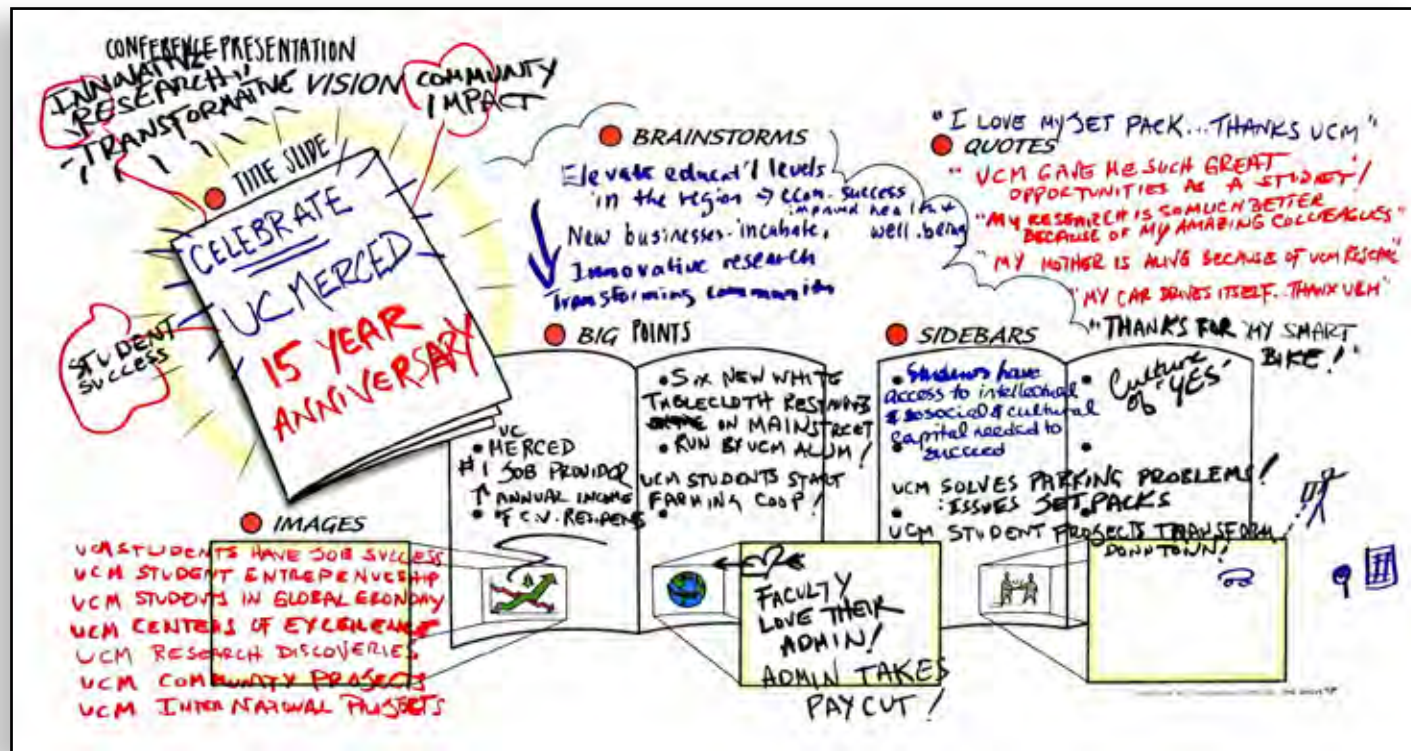 CONFERENCE PRESENTATION
INNOVATIVE
RESEARCH
TRANSFORMATIVE VISION
COMMUNITY
IMPACT
TITLE SLIDE
CELEBRATE
UC MERCED
15 YEAR
ANNIVERSARY
STUDENT
SUCCESS
BRAINSTORMS
Elevate educat'l levels
in the region → econ. success
improved health +
well-being
New businesses-incubate,
Innovative research
Transforming
"I LOVE MY JET PACK...THANKS UCM"
QUOTES
"UCM GAVE ME SUCH GREAT
OPPORTUNITIES AS A
"MY RESEARCH IS SO MUCH BETTER
BECAUSE OF MY AMAZING COLLEAGUES"
"MY MOTHER IS ALIVE BECAUSE OF UCM
"MY CAR DRIVES ITSELF...THANX UCM"
"THANKS FOR MY SMART
BIKE!"
BIG POINTS
UC
• MERCED
#1 JOB PROVIDOR
↑ ANNUAL INCOME
• OF C.V.
• SIX NEW WHITE
TABLECLOTH
ON MAINSTREET
• RUN BY UCM ALUM!
UCM STUDENTS START
FARMING COOP!
SIDEBARS
• Students have
access to intellectual
& social & cultural
capital needed to
succeed
Culture
of "YES"
UCM SOLVES PARKING PROBLEMS!
: ISSUES JET PACKS
UCM STUDENT PROJECTS TRANSFORM
DOWNTOWN!
IMAGES
UCM STUDENTS HAVE JOB SUCCESS
UCM STUDENT
UCM STUDENTS IN GLOBAL ECONOMY
UCM CENTERS OF EXCELLENCE
UCM RESEARCH DISCOVERIES
UCM COMMUNITY PROJECTS
UCM INTERNATIONAL PROJECTS
FACULTY
LOVE THEIR
ADMIN!
ADMIN TAKES
PAYCUT!